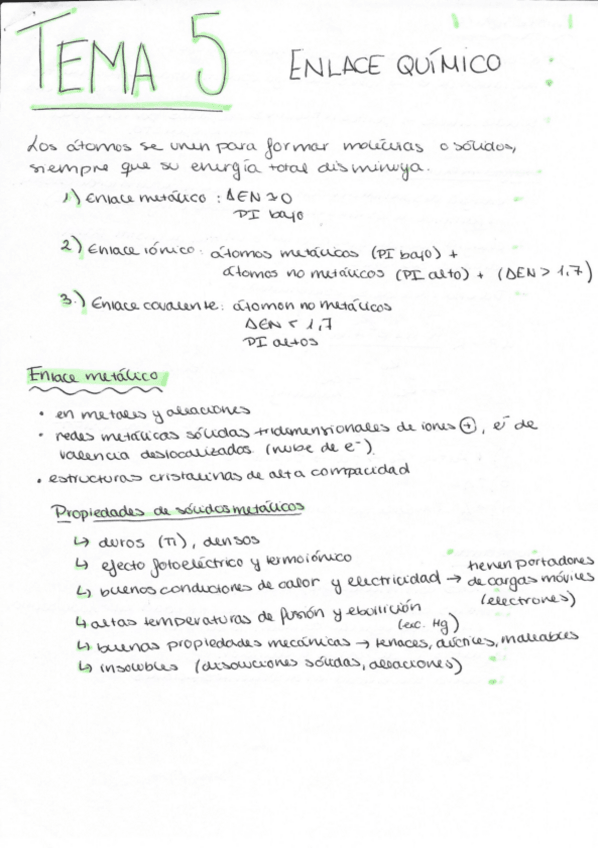 TEMA 5 ENLACE QUÍMICO
Los átomos se unen para formar moléculas o sólidos,
siempre que su energía total disminuya.
1) Enlace metálico : ΔEN ≃ 0
PI bajo
2) Enlace iónico: átomos metálicos (PI bajo) +
átomos no metálicos (PI alto) + (ΔEN > 1,7)
3.) Enlace covalente: átomon no metálicos
ΔEN < 1,7
PI altos
Enlace metálico
• en metales y aleaciones
• redes metálicas sólidas tridimensionales de iones ⊕, e⁻ de
valencia deslocalizados (nube de e⁻).
• estructuras cristalinas de alta compacidad
Propiedades de sólidos metálicos
↳ duros (Ti), densos
↳ efecto fotoeléctrico y termoiónico
↳ buenos conductores de calor y electricidad → tienen portadores
de cargas móviles
(electrones)
↳ altas temperaturas de fusión y ebullición
(exc. Hg)
↳ buenas propiedades mecánicas → tenaces, dúctiles, maleables
↳ insolubles (disoluciones sólidas, aleaciones)